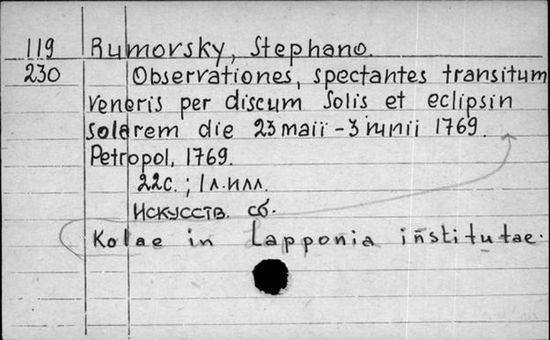 119 Rumorsky, Stephano.
230 Observationes, spectantes transitum
Veneris per discum Solis et eclipsin
solarem die 23 maii - 3 iunii 1769.
Petropol, 1769.
22с.; 1 л.илл.
Искусств. сб.
Kolae in Lapponia institutae.